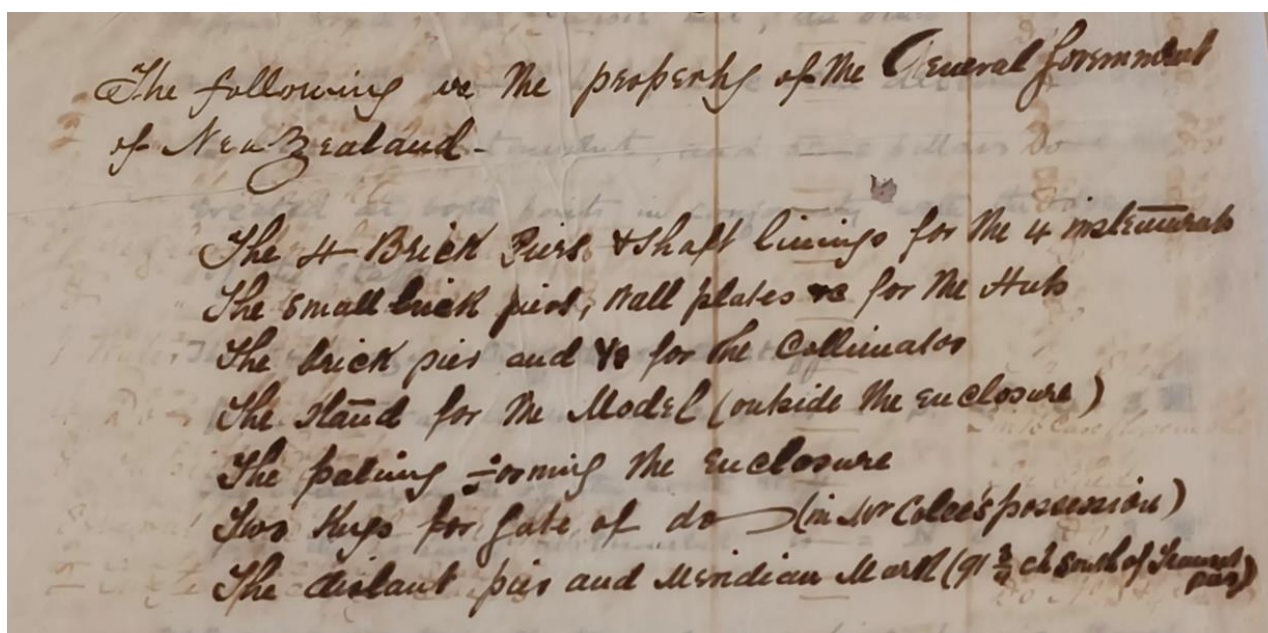 The following is the property of the General Government
of New Zealand -
The 4 Brick Piers & Shaft linings for the 4 instruments
The small brick piers, Wall plates &c for the Huts
The brick pier and &c for the Collimator
The Stand for the Model (outside the enclosure)
The paling forming the enclosure
Two Keys for gate of do (in Mr Cole's possession)
The distant pier and Meridian Mark (91 3/4 ch South of Transit
pier)